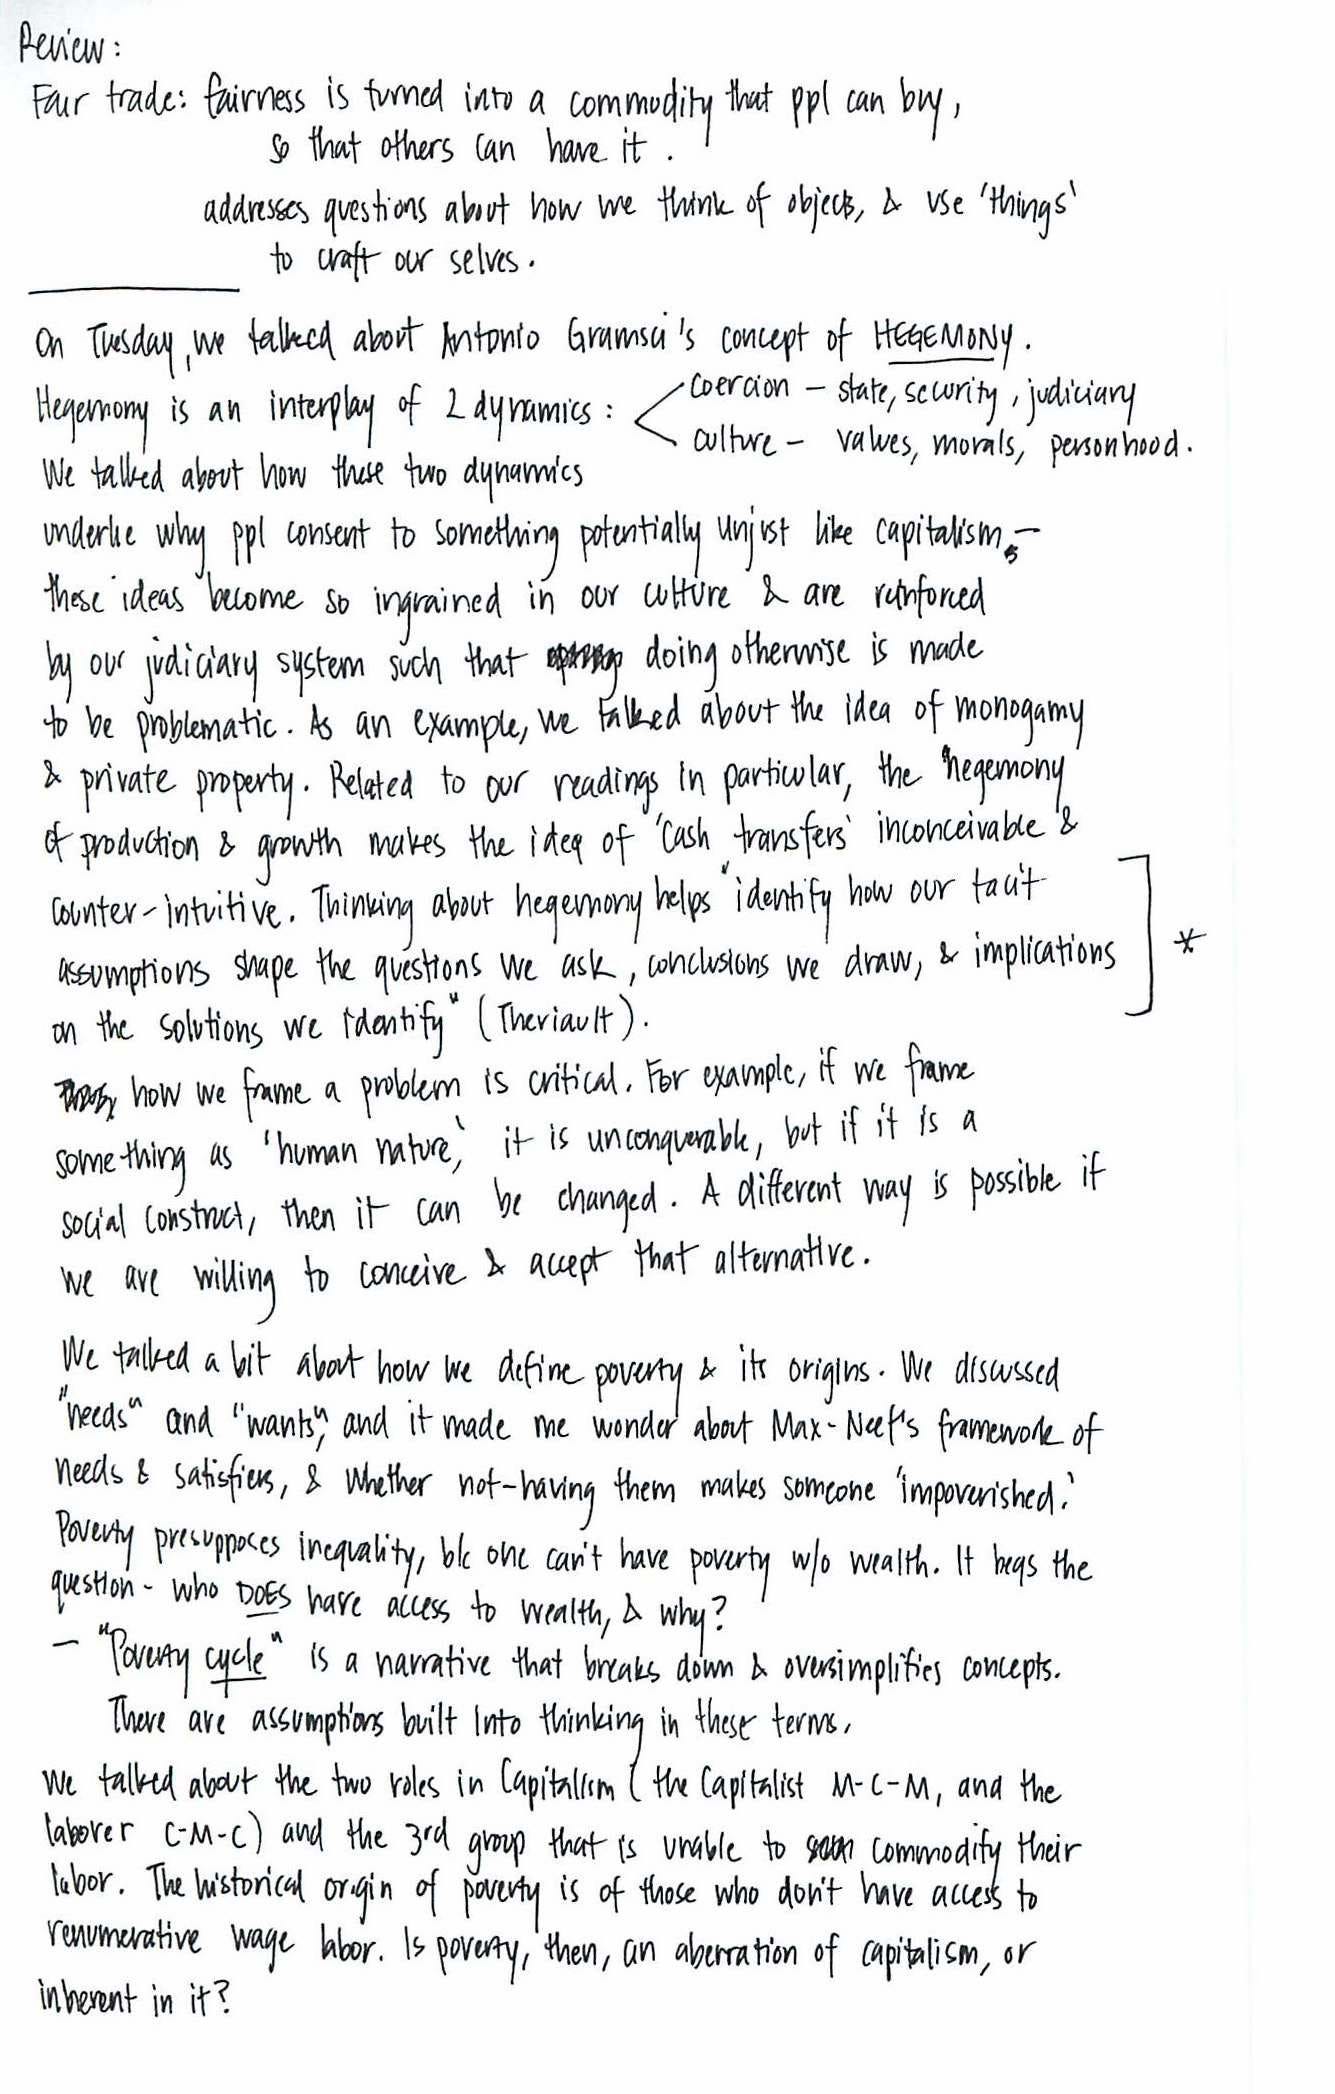 Review:
Fair trade: fairness is turned into a commodity that ppl can buy,
so that others can have it.
addresses questions about how we think of objects, & use 'things'
to craft our selves.
On Tuesday, we talked about Antonio Gramsci's concept of HEGEMONY.
Hegemony is an interplay of 2 dynamics:
coercion – state, security, judiciary
culture – values, morals, personhood.
We talked about how these two dynamics
underlie why ppl consent to something potentially unjust like capitalism, –
these ideas become so ingrained in our culture & are reinforced
by our judiciary system such that doing otherwise is made
to be problematic. As an example, we talked about the idea of monogamy
& private property. Related to our readings in particular, the "hegemony
of production & growth makes the idea of 'cash transfers' inconceivable &
counter-intuitive. Thinking about hegemony helps "identify how our tacit
assumptions shape the questions we ask, conclusions we draw, & implications
on the solutions we identify" (Theriault).
*
how we frame a problem is critical. For example, if we frame
something as 'human nature,' it is unconquerable, but if it is a
social construct, then it can be changed. A different way is possible if
we are willing to conceive & accept that alternative.
We talked a bit about how we define poverty & its origins. We discussed
"needs" and "wants," and it made me wonder about Max-Neef's framework of
needs & satisfiers, & whether not-having them makes someone 'impoverished.'
Poverty presupposes inequality, b/c one can't have poverty w/o wealth. It begs the
question - who DOES have access to wealth, & why?
– "Poverty cycle" is a narrative that breaks down & oversimplifies concepts.
There are assumptions built into thinking in these terms.
We talked about the two roles in Capitalism (the Capitalist M-C-M, and the
laborer C-M-C) and the 3rd group that is unable to commodify their
labor. The historical origin of poverty is of those who don't have access to
renumerative wage labor. Is poverty, then, an aberration of capitalism, or
inherent in it?